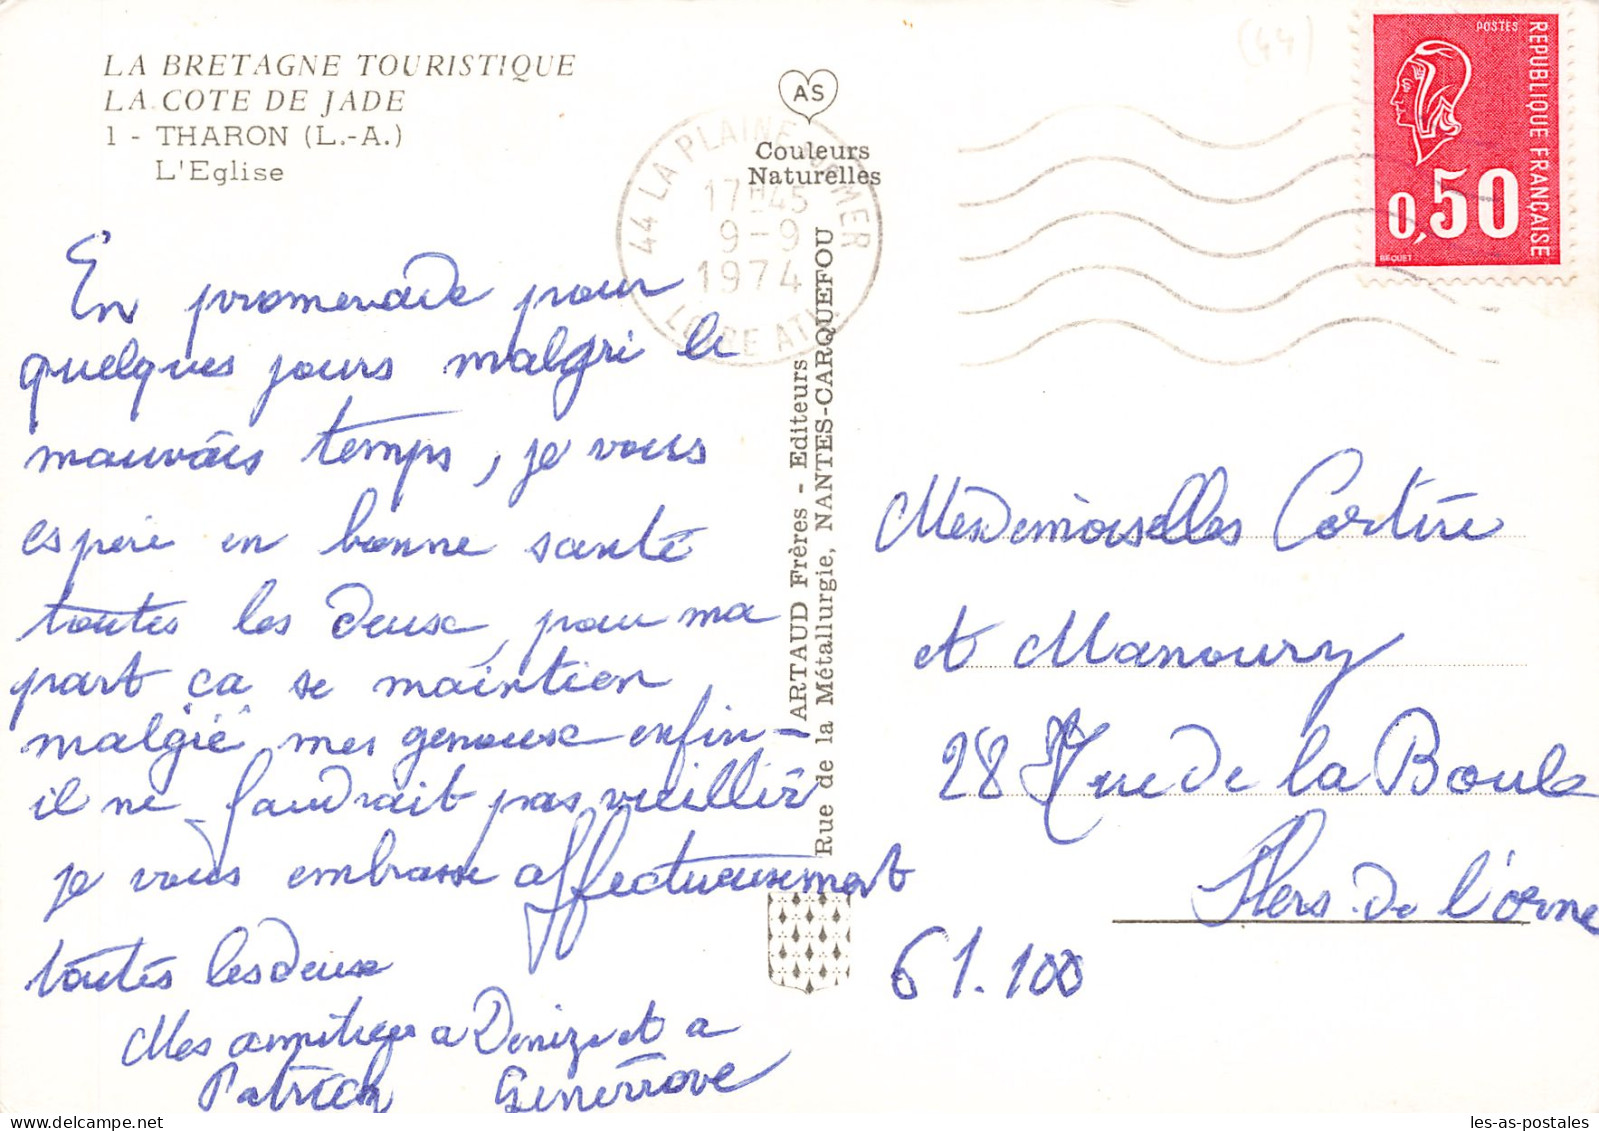 LA BRETAGNE TOURISTIQUE
LA COTE DE JADE
1 - THARON (L.-A.)
L'Eglise
En promenade pour
quelques jours malgri le
mauvais temps, je vous
espère en bonne santé
toutes les deux, pour ma
part ça se maintien
malgié mes genoux enfin
il ne faudrait pas vieillir
je vous embrasse affectueusement
toutes les deux
Mes amities a Denize et a
Patrick
AS
Couleurs
Naturelles
ARTAUD Frères - Editeurs
Rue de la Métallurgie, NANTES-CARQUEFOU
44 LA PLAINE S/MER
17H45
9-9
1974
LOIRE ATL
(44)
POSTES
REPUBLIQUE FRANÇAISE
0,50
BEQUET
Mesdemoiselles Cortire
et Manoury
28 Rue de la Boule
Flers de l'orne
61.100
les-as-postales